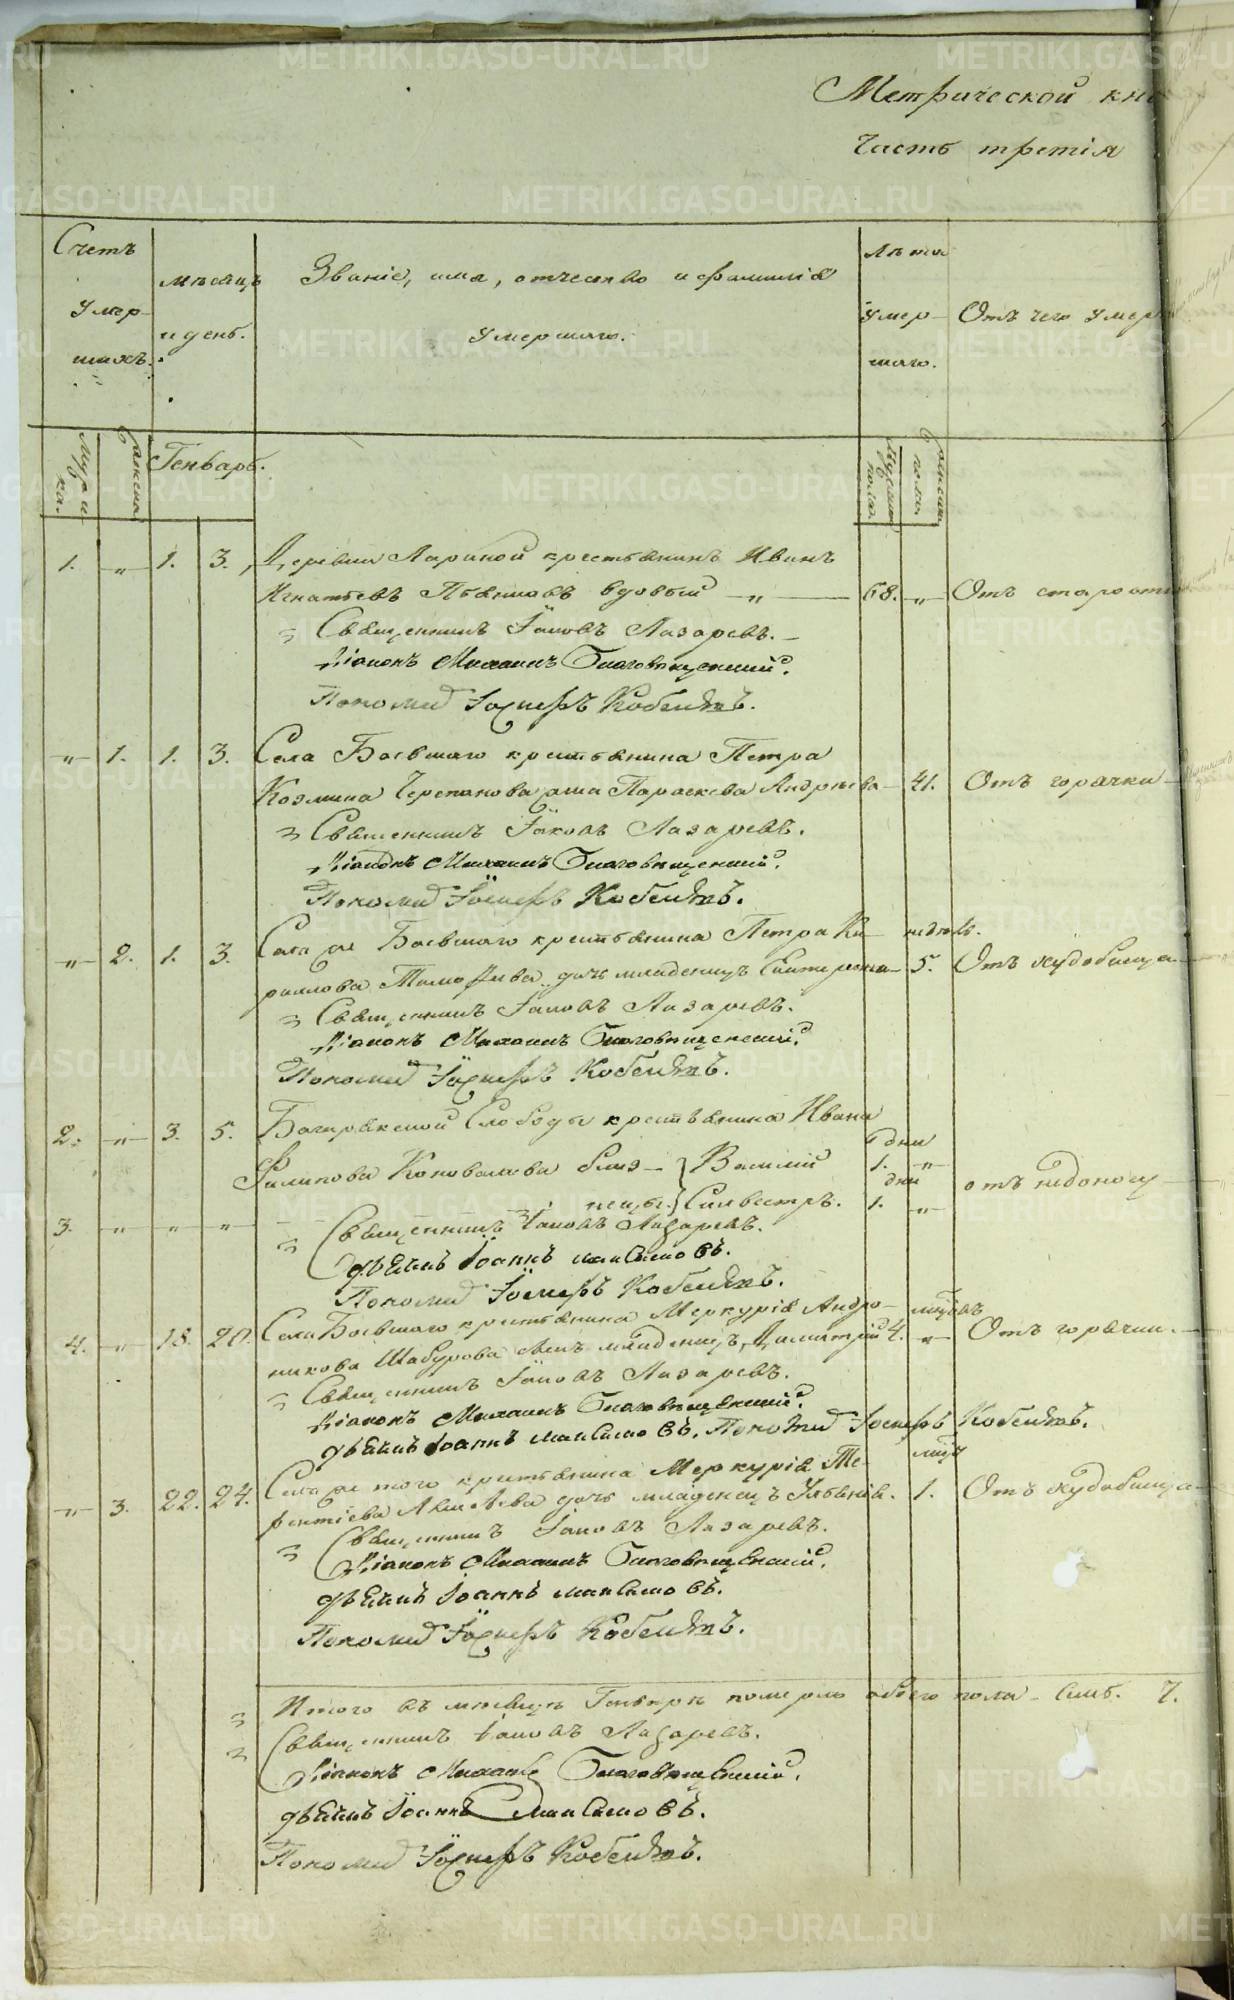 Метрической кни
Часть третія
Счетъ умер-шихъ.
мѣсяцъ и день.
Званіе, имя, отчество и фамилія умершаго.
Лѣта умер-шаго.
Отъ чего умер
Мужска.
Женска.
Генварь.
Мужска пола.
Женска пола.
1. „ 1. 3. Деревни Лариной крестьянинъ Иванъ
Игнатьевъ Пьянковъ вдовый „ 68. „ Отъ старости
Священникъ Іаковъ Лазаревъ.
Діаконъ Михаилъ Благовѣщенскій.
Пономарь Іосифъ Кобелевъ.
„ 1. 1. 3. Села Боевскаго крестьянина Петра
Козмина Черепанова жена Параскева Андреева 41. Отъ горячки
Священникъ Іаковъ Лазаревъ.
Діаконъ Михаилъ Благовѣщенскій.
Пономарь Іосифъ Кобелевъ.
„ 2. 1. 3. Села же Боевскаго крестьянина Петра Ки- недѣль.
риллова Тимофѣева дочь младенецъ Екатерина 5. Отъ худобища
Священникъ Іаковъ Лазаревъ.
Діаконъ Михаилъ Благовѣщенскій.
Пономарь Іосифъ Кобелевъ.
2. „ 3. 5. Багарякской Слободы крестьянина Ивана
Филипова Коновалова близ- Василій дни 1. „ отъ недоносу
3. „ „ „ нецы. Сильвестръ. дни 1. „
Священникъ Іаковъ Лазаревъ.
дьячекъ Іоаннъ Максимовъ.
Пономарь Іосифъ Кобелевъ.
4. „ 18. 20. Села Боевскаго крестьянина Меркурія Андро- мѣсяцъ
никова Шабурова сынъ младенецъ Димитрій 4. „ Отъ горячки.
Священникъ Іаковъ Лазаревъ.
Діаконъ Михаилъ Благовѣщенскій.
дьячекъ Іоаннъ Максимовъ. Пономарь Іосифъ Кобелевъ.
„ 3. 22. 24. Села же того крестьянина Меркурія Те-
рентіева дочь младенецъ Ульянія. 1. Отъ худобища
Священникъ Іаковъ Лазаревъ.
Діаконъ Михаилъ Благовѣщенскій.
дьячекъ Іоаннъ Максимовъ.
Пономарь Іосифъ Кобелевъ.
Итого въ мѣсяцѣ Генварѣ померло обоего пола семь. 7.
Священникъ Іаковъ Лазаревъ.
Діаконъ Михаилъ Благовѣщенскій.
дьячекъ Іоаннъ Максимовъ.
Пономарь Іосифъ Кобелевъ.
METRIKI.GASO-URAL.RU